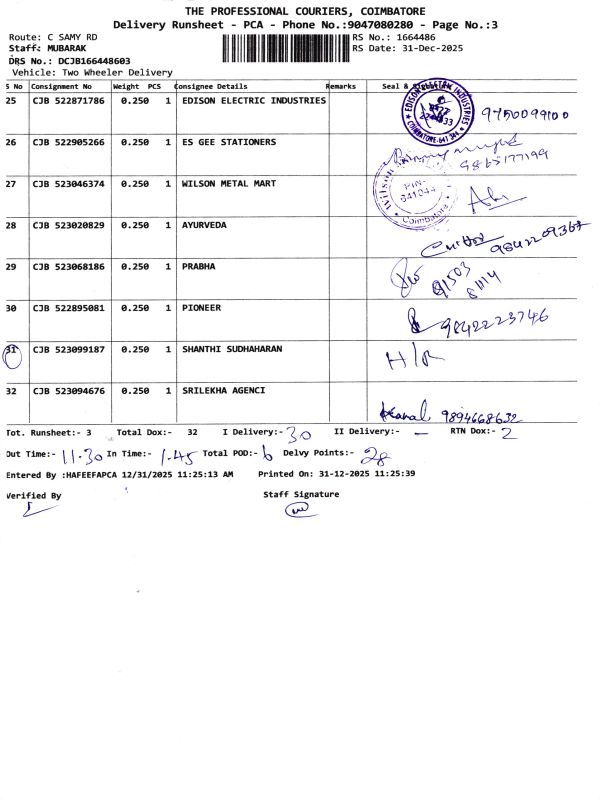 THE PROFESSIONAL COURIERS, COIMBATORE
Delivery Runsheet - PCA - Phone No.:9047080280 - Page No.:3
Route: C SAMY RD
RS No.: 1664486
Staff: MUBARAK
RS Date: 31-Dec-2025
DRS No.: DCJB166448603
Vehicle: Two Wheeler Delivery
S No Consignment No Weight PCS Consignee Details Remarks Seal &
25 CJB 522871786 0.250 1 EDISON ELECTRIC INDUSTRIES
EDISON ELECTRIC INDUSTRIES
COIMBATORE-641
9750099100
26 CJB 522905266 0.250 1 ES GEE STATIONERS
9865177199
27 CJB 523046374 0.250 1 WILSON METAL MART
Wilson
PIN-
641044
Coimbatore
28 CJB 523020829 0.250 1 AYURVEDA
9842209367
29 CJB 523068186 0.250 1 PRABHA
30 CJB 522895081 0.250 1 PIONEER
9842223746
31 CJB 523099187 0.250 1 SHANTHI SUDHAHARAN
H/R
32 CJB 523094676 0.250 1 SRILEKHA AGENCI
9894668632
Tot. Runsheet:- 3 Total Dox:- 32 I Delivery:- 30 II Delivery:- — RTN Dox:- 2
Out Time:- 11.30 In Time:- 1.45 Total POD:- 6 Delvy Points:- 28
Entered By :HAFEEFAPCA 12/31/2025 11:25:13 AM Printed On: 31-12-2025 11:25:39
Verified By Staff Signature